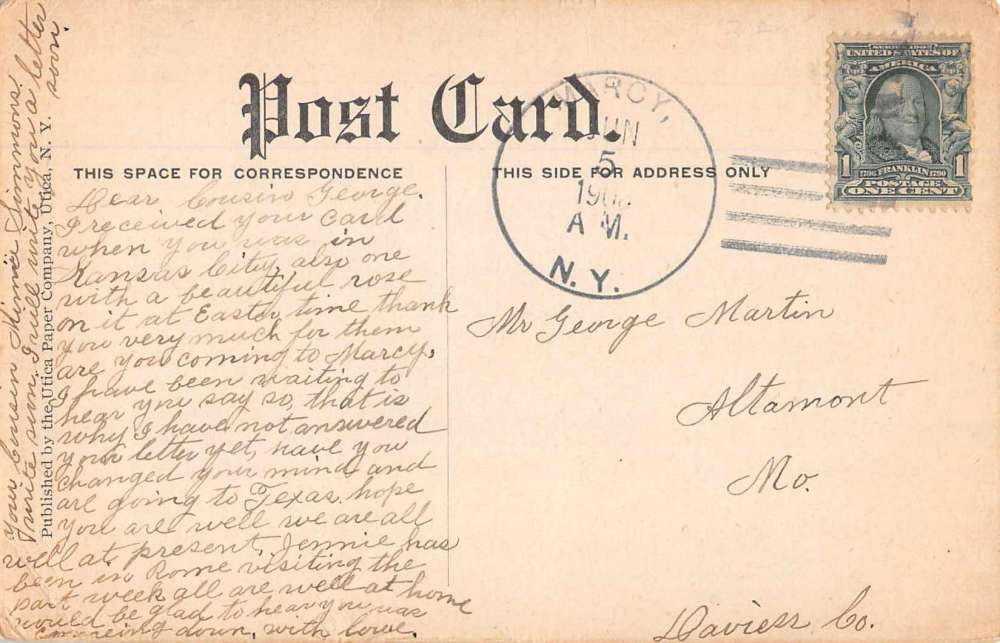 Post Card.
THIS SPACE FOR CORRESPONDENCE
THIS SIDE FOR ADDRESS ONLY
MARCY,
JUN
5
A M.
N. Y.
SERIES 1902
UNITED STATES OF
AMERICA
1 1706 FRANKLIN 1790 1
POSTAGE
ONE CENT
Dear Cousin George.
I received your card
when you was in
Kansas City, also one
with a beautiful rose
on it at Easter time thank
you very much for them
are you coming to Marcy,
I have been waiting to
hear you say so, that is
why I have not answered
your letter yet, have you
changed your mind and
are going to Texas hope
you are well we are all
well at present, Jennie has
been in Rome visiting the
past week all are well at home
would be glad to hear you was
comeing down, with love.
your Cousin Minnie Simmons.
write soon. I will write you a letter
soon.
Published by the Utica Paper Company, Utica, N. Y.
Mr George Martin
Altamont
Mo.
Daviess Co.